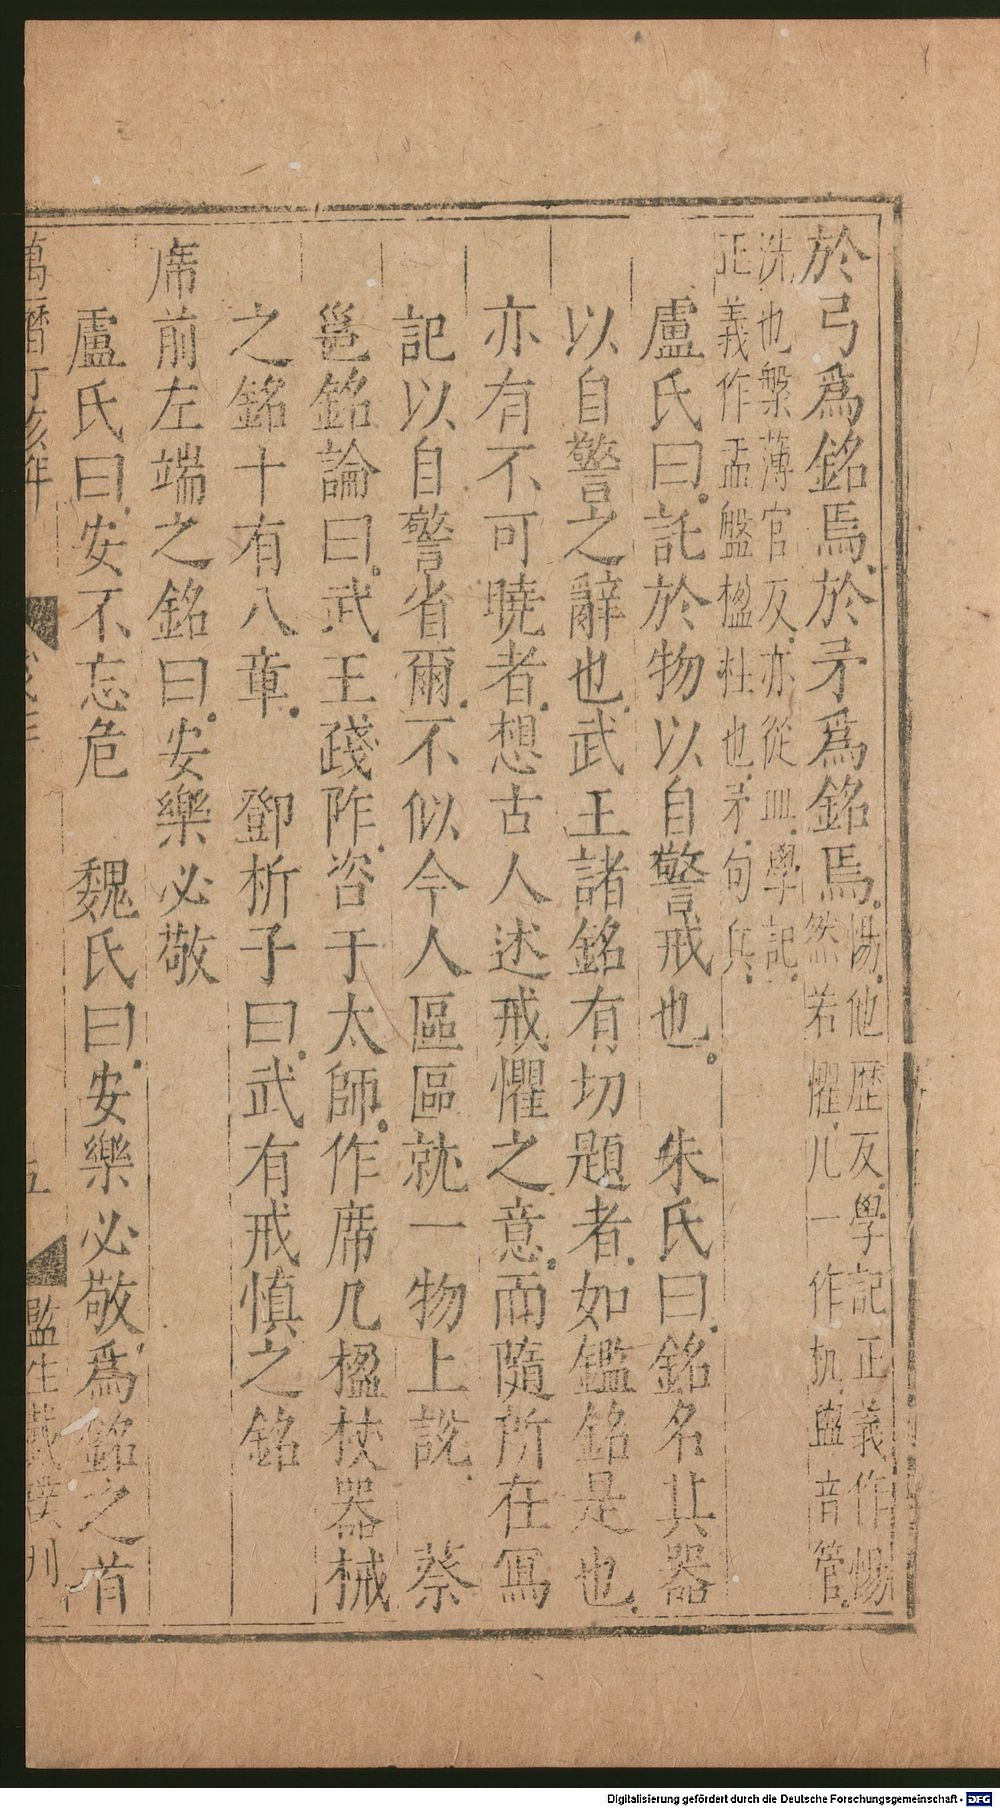 於弓爲銘焉於矛爲銘焉惕他歷反學記正義作惕
然若懼几一作机盥音管
洗也槃薄官反亦從皿學記
正義作盂盤楹柱也矛句兵
盧氏曰託於物以自警戒也　朱氏曰銘名其器
以自警之辭也武王諸銘有切題者如鑑銘是也
亦有不可曉者想古人述戒懼之意而隨所在寫
記以自警省爾不似今人區區就一物上說　蔡
邕銘論曰武王踐阼咨于太師作席几楹杖器械
之銘十有八章　鄧析子曰武有戒慎之銘
席前左端之銘曰安樂必敬
盧氏曰安不忘危　魏氏曰安樂必敬爲銘之首
萬曆丁亥年
五
監生戴
刊
Digitalisierung gefördert durch die Deutsche Forschungsgemeinschaft - DFG